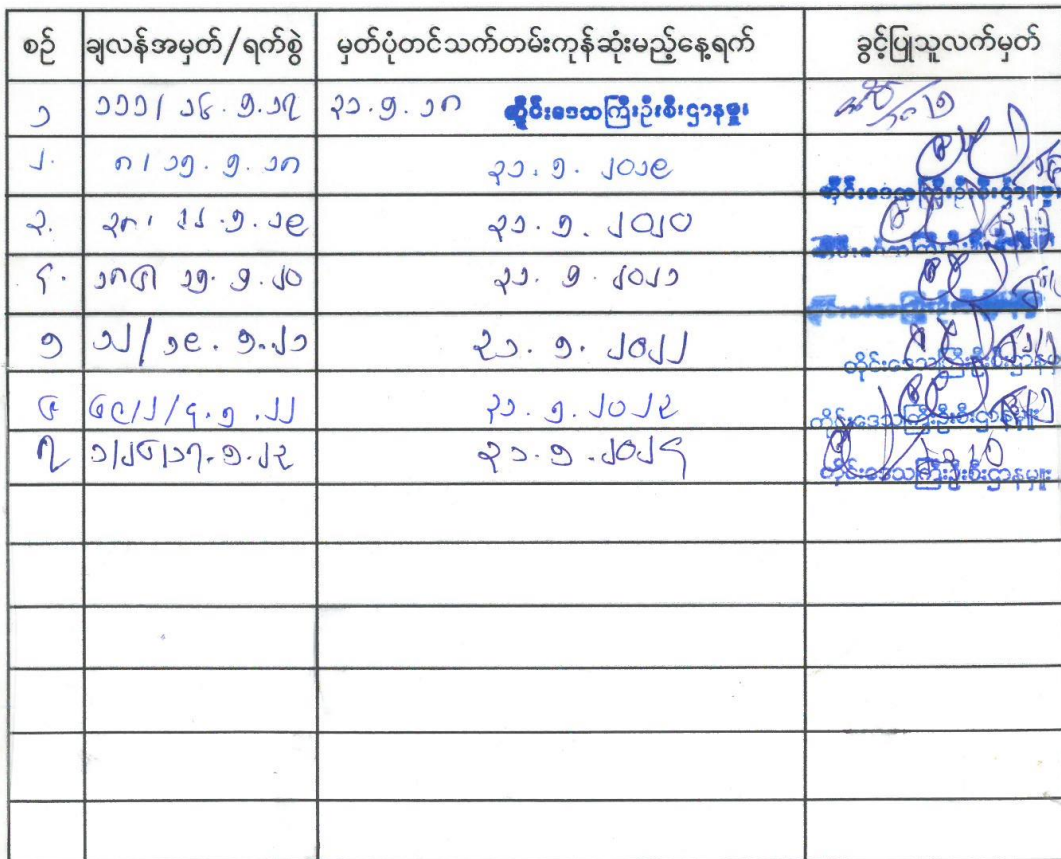 စဉ် ချလန်အမှတ်/ရက်စွဲ မှတ်ပုံတင်သက်တမ်းကုန်ဆုံးမည့်နေ့ရက် ခွင့်ပြုသူလက်မှတ်
၁ ၁၁၁/ ၁၆.၅.၁၇ ၃၁.၅.၁၈ တိုင်းဒေသကြီးဦးစီးဌာနမှူး
၂. ၈/ ၁၅.၅.၁၈ ၃၁.၅.၂၀၁၉
တိုင်းဒေသကြီးဦးစီးဌာနမှူး
၃. ၃၁.၅.၂၀၂၀
တိုင်းဒေသကြီးဦးစီးဌာနမှူး
၄. ၁၅.၅.၂၀ ၃၁.၅.၂၀၂၁
တိုင်းဒေသကြီးဦးစီးဌာနမှူး
၅ ၁၂/ ၁၉.၅.၂၁ ၃၁.၅.၂၀၂၂
တိုင်းဒေသကြီးဦးစီးဌာနမှူး
၆ ၄.၅.၂၂ ၃၁.၅.၂၀၂၃
တိုင်းဒေသကြီးဦးစီးဌာနမှူး
၇ ၁၇.၅.၂၃ ၃၁.၅.၂၀၂၄
တိုင်းဒေသကြီးဦးစီးဌာနမှူး